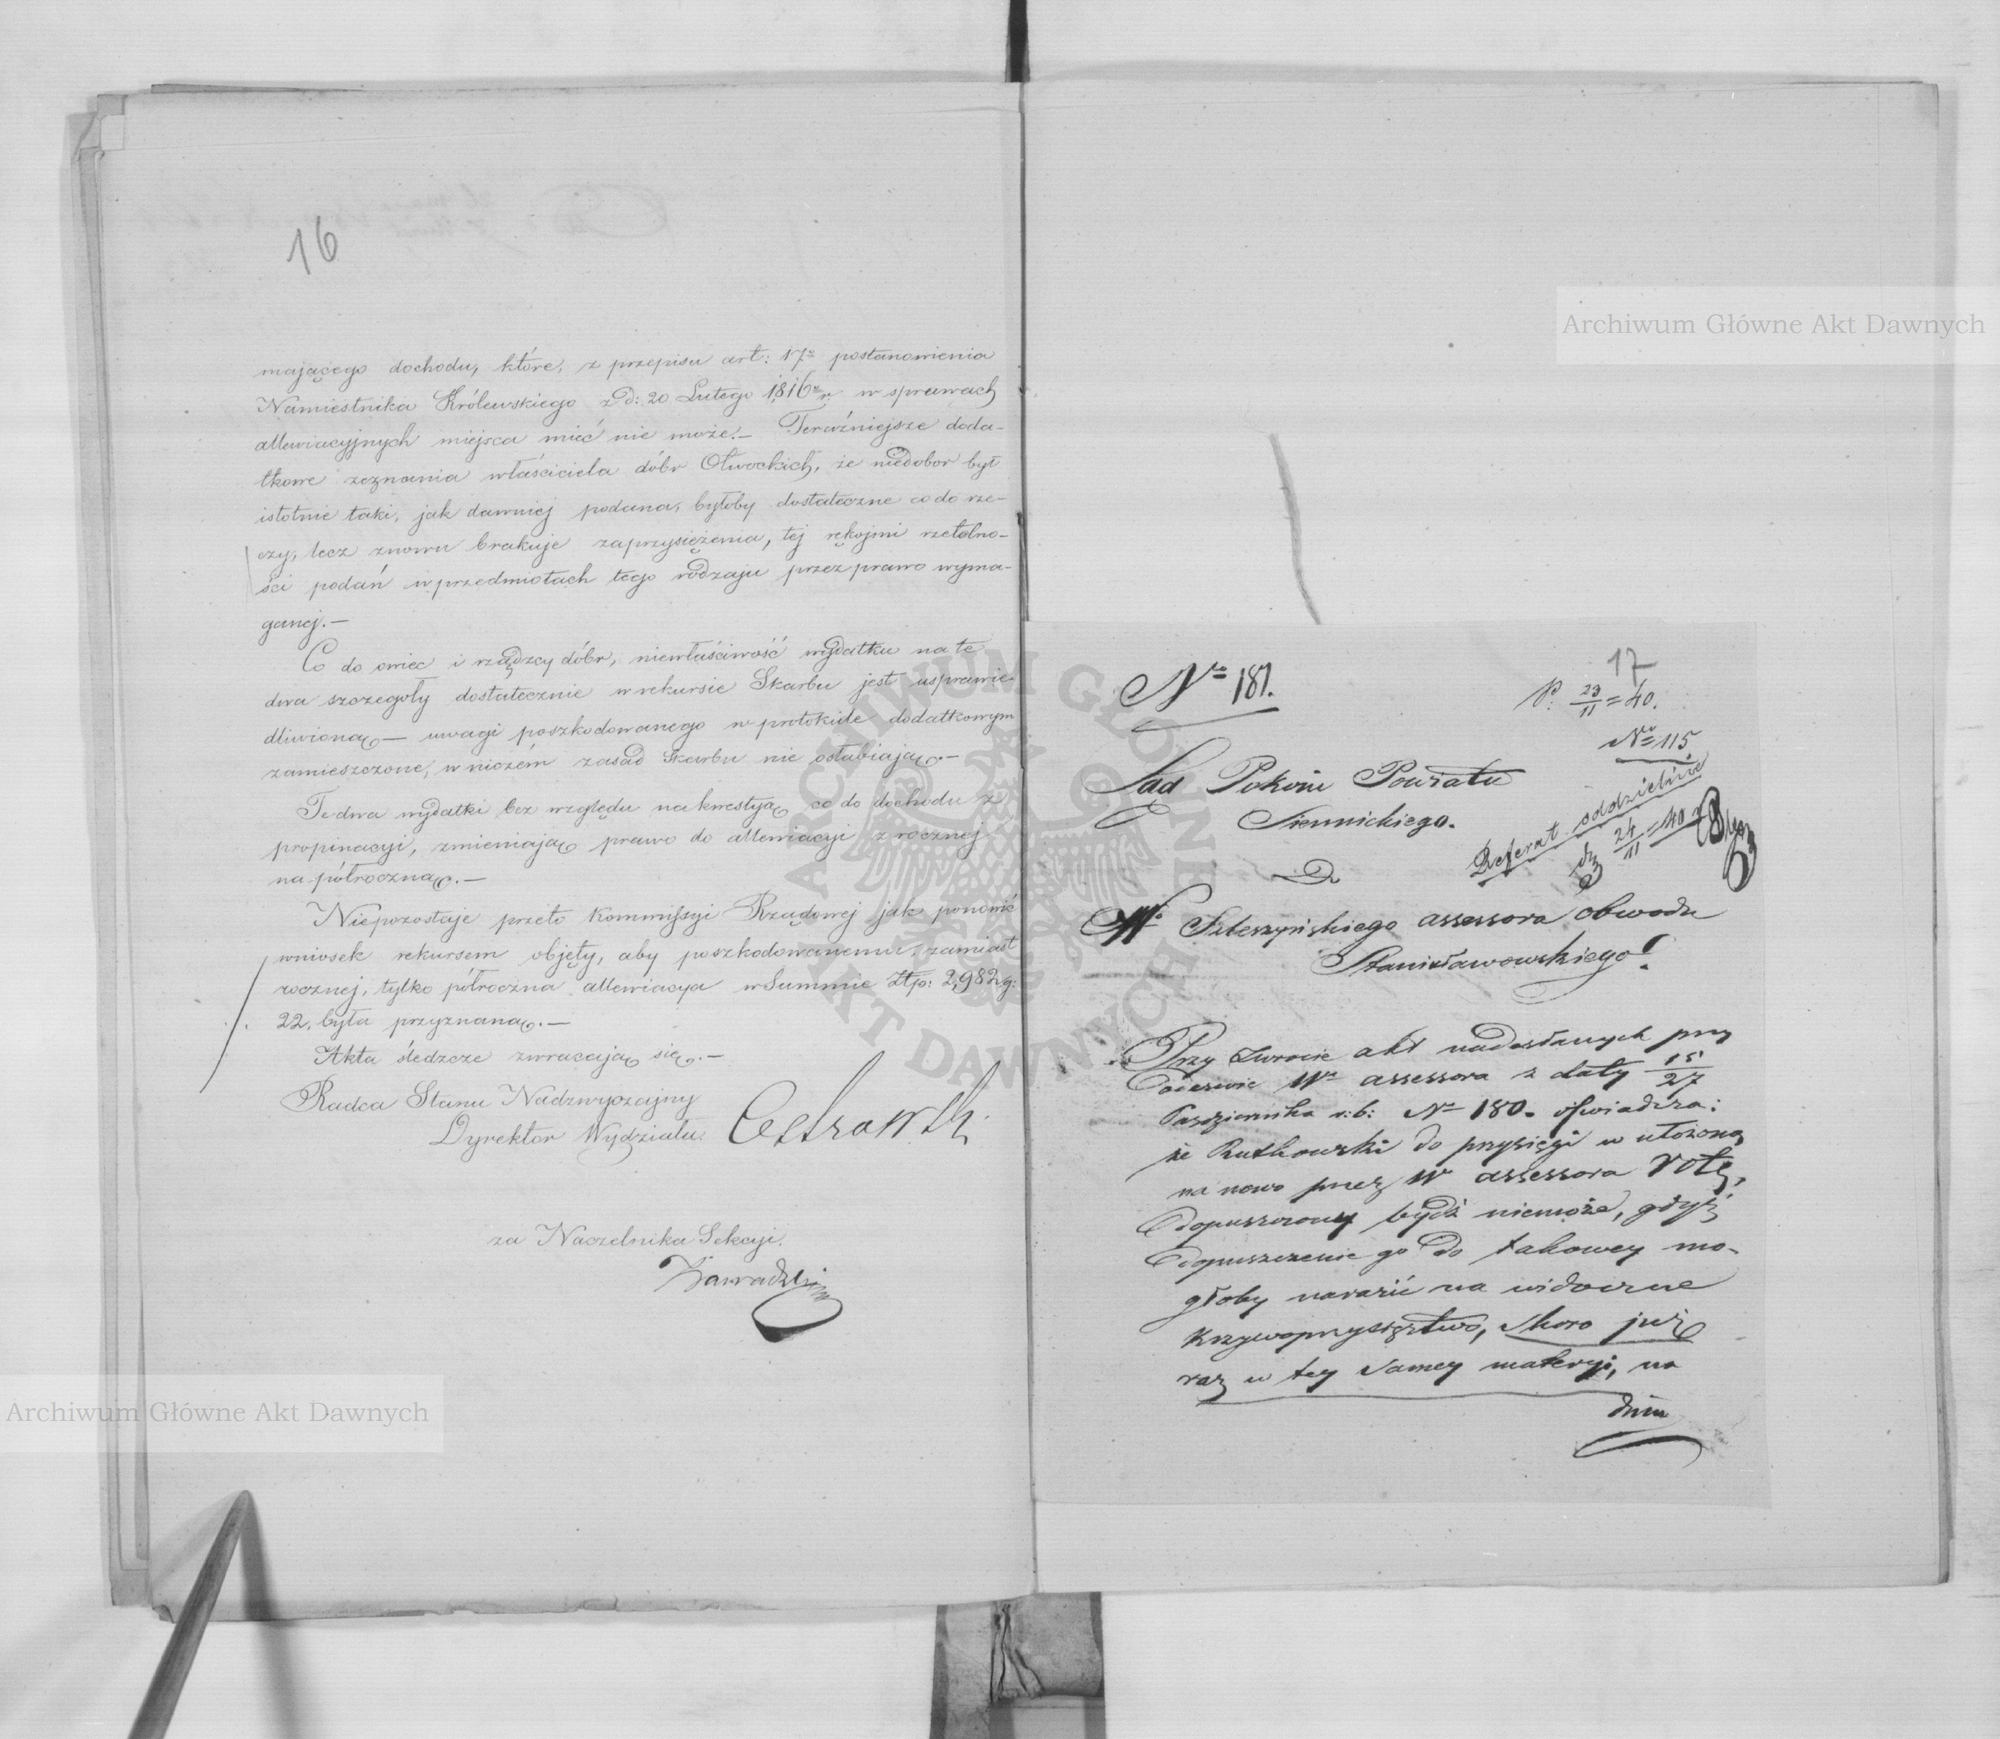 16
mającego dochodu, które, z przepisu art: 17° postanowienia
Namiestnika Królewskiego z d: 20 Lutego 1816 r. w sprawach
allewiacyjnych miejsca mieć nie może. — Teraźniejsze doda-
tkowe zeznania właściciela dóbr Otwockich, że niedobor był
istotnie taki, jak dawniej podana, byłoby dostateczne co do rze-
czy, lecz znowu brakuje zaprzysiężenia, tej rękojmi rzetelno-
ści podań w przedmiotach tego rodzaju przez prawo wyma-
ganej. —
Co do owiec i rządzcy dóbr, niewłaściwość wydatku na te
dwa szczegóły dostatecznie w rekursie Skarbu jest usprawie-
dliwioną — uwagi poszkodowanego w protokule dodatkowym
zamieszczone, w niczém zasad Skarbu nie osłabiają. —
Te dwa wydatki bez względu na kwestyą co do dochodu z
propinacyi, zmieniają prawo do allewiacyi z rocznej
na półroczną. —
Niepozostaje przeto Kommissyi Rządowej jak ponowić
wniosek rekursem objęty, aby poszkodowanemu, zamiast
rocznej, tylko półroczna allewiacya w Summie Złp: 2,982 g:
22, była przyznaną. —
Akta śledzcze zwracają się. —
Radca Stanu Nadzwyczajny
Dyrektor Wydziału
za Naczelnika Sekcyi.
Zawadzki
17
N° 181.
P: 23/11 = 40.
N° 115
Sąd Pokoiu Powiatu
Siennickiego.
Referat oddzielnie
24/11 = 40
Do
W° Szleszyńskiego assessora obwodu
Stanisławowskiego
Przy zwrocie akt nadesłanych przy
Odezwie W° assessora z daty 15/27
Października r: b: N° 180. oświadcza:
że Rutkowski do przysięgi w ułożoną
na nowo przez W° assessora Rotę,
dopuszczony bydź niemoże, gdyż
dopuszczenie go do takowey mo-
głoby narazić na widoczne
krzywoprzysięztwo, skoro już
raz w tey samey materyi, na
dniu
Archiwum Główne Akt Dawnych
Archiwum Główne Akt Dawnych
ARCHIWUM GŁÓWNE AKT DAWNYCH